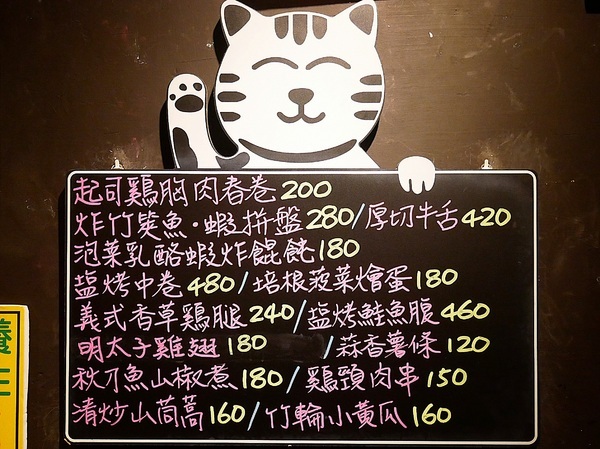 起司鶏胸肉春卷200
炸竹筴魚·蝦拼盤280/厚切牛舌420
泡菜乳酪蝦炸餛飩180
塩烤中卷480/培根菠菜燴蛋180
義式香草鶏腿240/塩烤鮭魚腹460
明太子雞翅180/蒜香薯條120
秋刀魚山椒煮180/鶏頸肉串150
清炒山茼蒿160/竹輪小黃瓜160